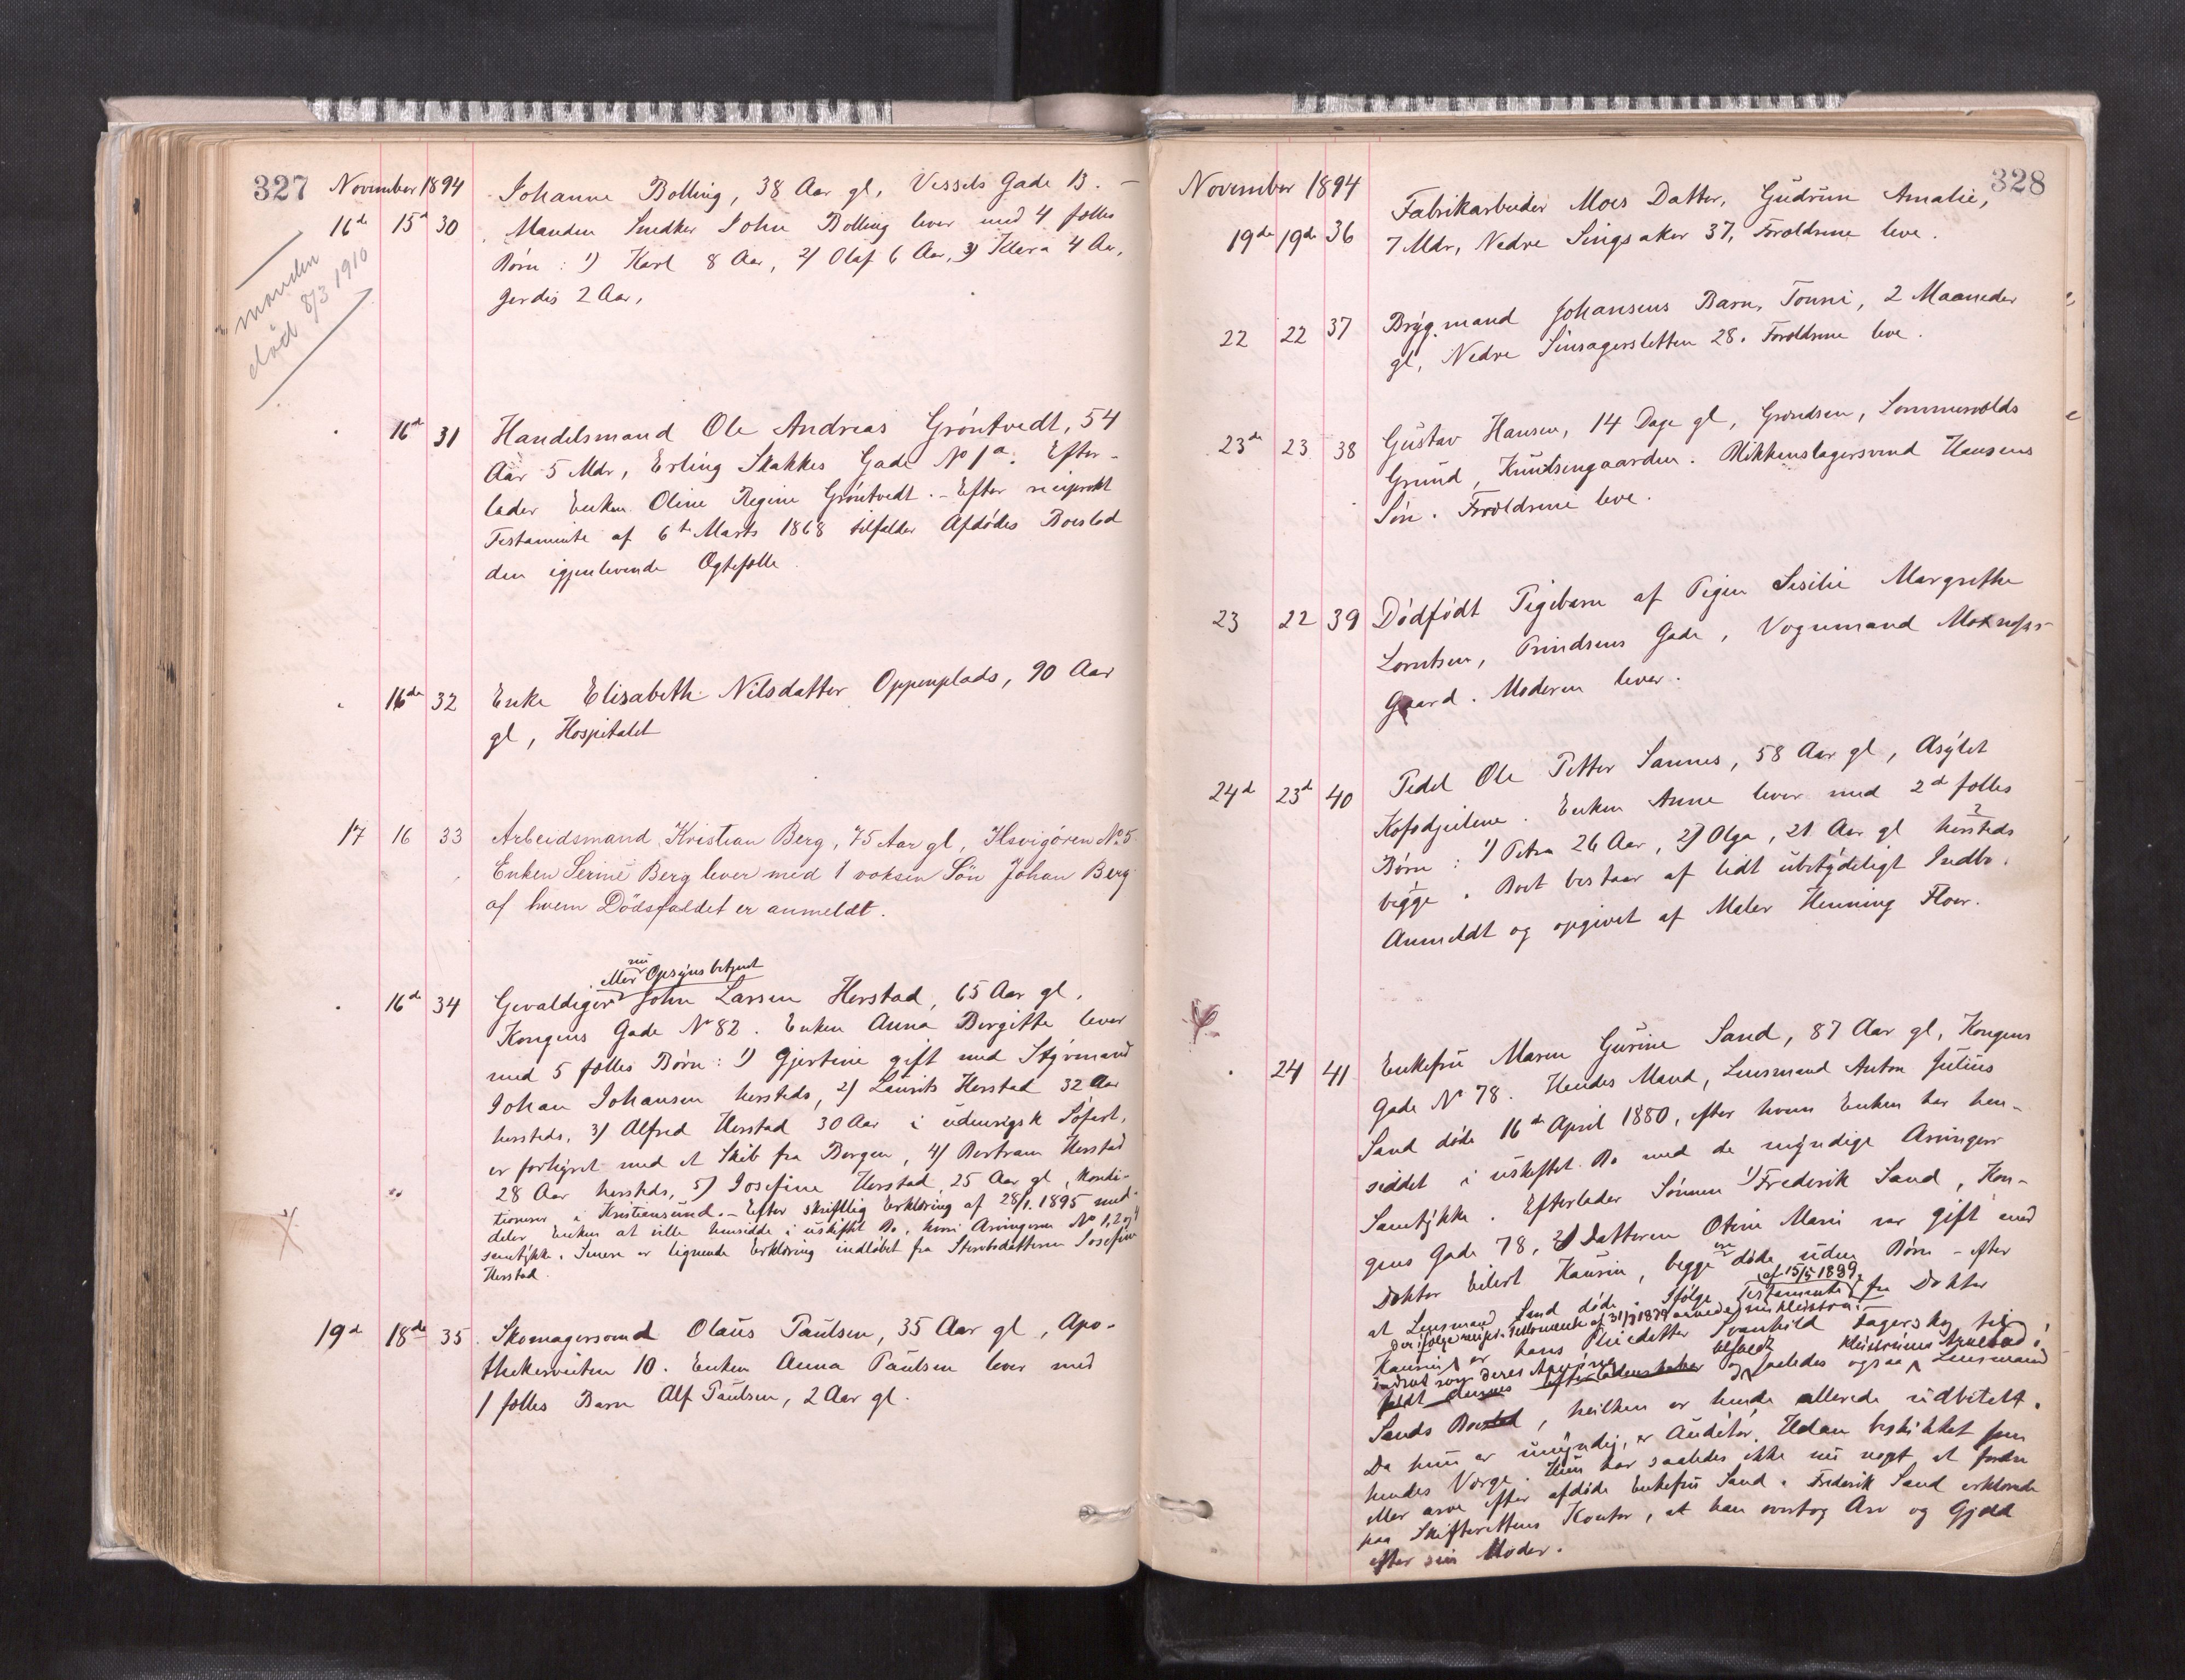 327 November 1894
16de 15d 30 Johanne Bolling, 38 Aar gl, Vessels Gade 13. —
Manden Snedker John Bolling lever med 4 fælles
Børn: 1) Karl 8 Aar, 2) Olaf 6 Aar, 3) Klara 4 Aar,
Gerdis 2 Aar,
manden
død 8/3 1910
16de 31 Handelsmand Ole Andreas Gröntvedt, 54
Aar 5 Mdr, Erling Skakkes Gade No 1a. Efter-
lader Enken Oline Regine Gröntvedt. - Efter reciprokt
Testamente af 6te Marts 1868 tilfalder Afdødes Boeslod
den igjenlevende Ægtefælle
16de 32 Enke Elisabeth Nilsdatter Oppenplads, 90 Aar
gl, Hospitalet
17 16 33 Arbeidsmand Kristian Berg, 75 Aar gl, Ilsvigören No. 5
Enken Serine Berg lever med 1 voksen Sön Johan Berg
af hvem Dödsfaldet er anmeldt.
nu
eller Opsynsbetjent
16de 34 Gevaldiger John Larsen Herstad, 65 Aar gl,
Kongens Gade No 82. Enken Anna Birgitte lever
med 5 fælles Børn: 1) Gjertine gift med Styrmand
Johan Johansen hersteds, 2) Laurits Herstad 32 Aar
hersteds, 3) Alfred Herstad 30 Aar i udenrigsk Søfart,
er forhyret med et Skib fra Bergen, 4) Bertram Herstad
28 Aar hersteds, 5) Josefine Herstad, 25 Aar gl, Kondi-
tioner i Kristiansund. - Efter skriftlig Erklæring af 28/1. 1895 med-
deler Enken at ville hensidde i uskiftet Bo, hvori Arvingerne No 1, 2 og 4
samtykke. Senere er lignende Erklæring indløbet fra Stervbodatteren Josefine
Herstad.
19d 18de 35 Skomagersvend Olaus Paulsen, 35 Aar gl, Apo-
thekerveiten 10. Enken Anna Paulsen lever med
1 fælles Barn Alf Paulsen, 2 Aar gl.
November 1894 328
19de 19de 36 Fabrikarbeider Moes Datter, Gudrun Amalie,
7 Mdr, Nedre Singsaker 37, Forældrene leve.
22 22 37 Brygmand Johansens Barn, Tonni, 2 Maaneder
gl, Nedre Sinsagersletten 28. Forældrene leve.
23de 23 38 Gustav Hansen, 14 Dage gl, Grundsen, Sommervolds
Grund, Knudsengaarden. Blikkenslagersvend Hansens
Søn. Forældrene leve.
23 22 39 Dødfødt Pigebarn af Pigen Sesilie Margrethe
Lorntsen, Prindsens Gade, Vognmand
Gaard. Moderen lever.
24d 23d 40 Pedel Ole Petter Sannes, 58 Aar gl, Asylet
Enken Anne lever med 2d fælles
Børn: 1) Petra 26 Aar, 2) Olga, 21 Aar gl hersteds
begge. Boet bestaar af lidt ubetydeligt Indbo.
Anmeldt og opgivet af Maler Henning Floer.
24 41 Enkefru Maren Gurine Sand, 87 Aar gl, Kongens
Gade No 78. Hendes Mand, Lensmand Anton Julius
Sand døde 16de April 1880, efter hvem Enken har hen-
siddet i uskiftet Bo med de myndige Arvingers
Samtykke. Efterlader Sønnen 1) Frederik Sand, Kon-
gens Gade 78, 2) Datteren Otine Marie var gift med
Doktor Eilert Hausin, begge ere døde uden Børn - efter
at Lensmand Sand døde. Ifølge Testamente af 15/5 1889 fra Doktor
derifølge recipr. Testamente af 31/3 1879 arvede sin Hustru
er hans Pleiedatter Svanhild Fagersky
indsat som deres Arving og saaledes ogsaa Lensmand
Sands Boeslod, hvilken er hende allerede udbetalt.
Da hun er umyndig, er Auditør Udan beskikket som
hendes Værge. Hun har saaledes ikke nu noget at fordre
eller arve efter afdøde Enkefru Sand. Frederik Sand erklærede
paa Skifterettens Kontor, at han overtog Arv og Gjæld
efter sin Moder.